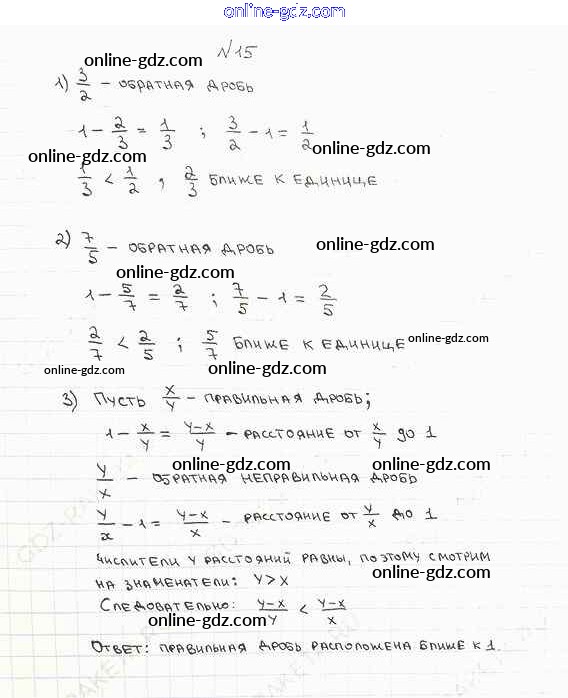 online-gdz.com
N 15
online-gdz.com
1) 3/2 – ОБРАТНАЯ ДРОБЬ
1 - 2/3 = 1/3 ; 3/2 - 1 = 1/2
online-gdz.com online-gdz.com
1/3 < 1/2 , 2/3 БЛИЖЕ К ЕДИНИЦЕ
2) 7/5 – ОБРАТНАЯ ДРОБЬ online-gdz.com
online-gdz.com
1 - 5/7 = 2/7 ; 7/5 - 1 = 2/5
2/7 < 2/5 ; 5/7 БЛИЖЕ К ЕДИНИЦЕ online-gdz.com
online-gdz.com online-gdz.com
3) ПУСТЬ X/Y – ПРАВИЛЬНАЯ ДРОБЬ;
1 - X/Y = Y-X/Y – РАССТОЯНИЕ ОТ X/Y ДО 1
online-gdz.com online-gdz.com
Y/X – ОБРАТНАЯ НЕПРАВИЛЬНАЯ ДРОБЬ
online-gdz.com
Y/X - 1 = Y-X/X – РАССТОЯНИЕ ОТ Y/X ДО 1
ЧИСЛИТЕЛИ У РАССТОЯНИЙ РАВНЫ, ПОЭТОМУ СМОТРИМ
НА ЗНАМЕНАТЕЛИ: Y > X online-gdz.com
СЛЕДОВАТЕЛЬНО: Y-X/Y < Y-X/X
online-gdz.com
ОТВЕТ: ПРАВИЛЬНАЯ ДРОБЬ РАСПОЛОЖЕНА БЛИЖЕ К 1.